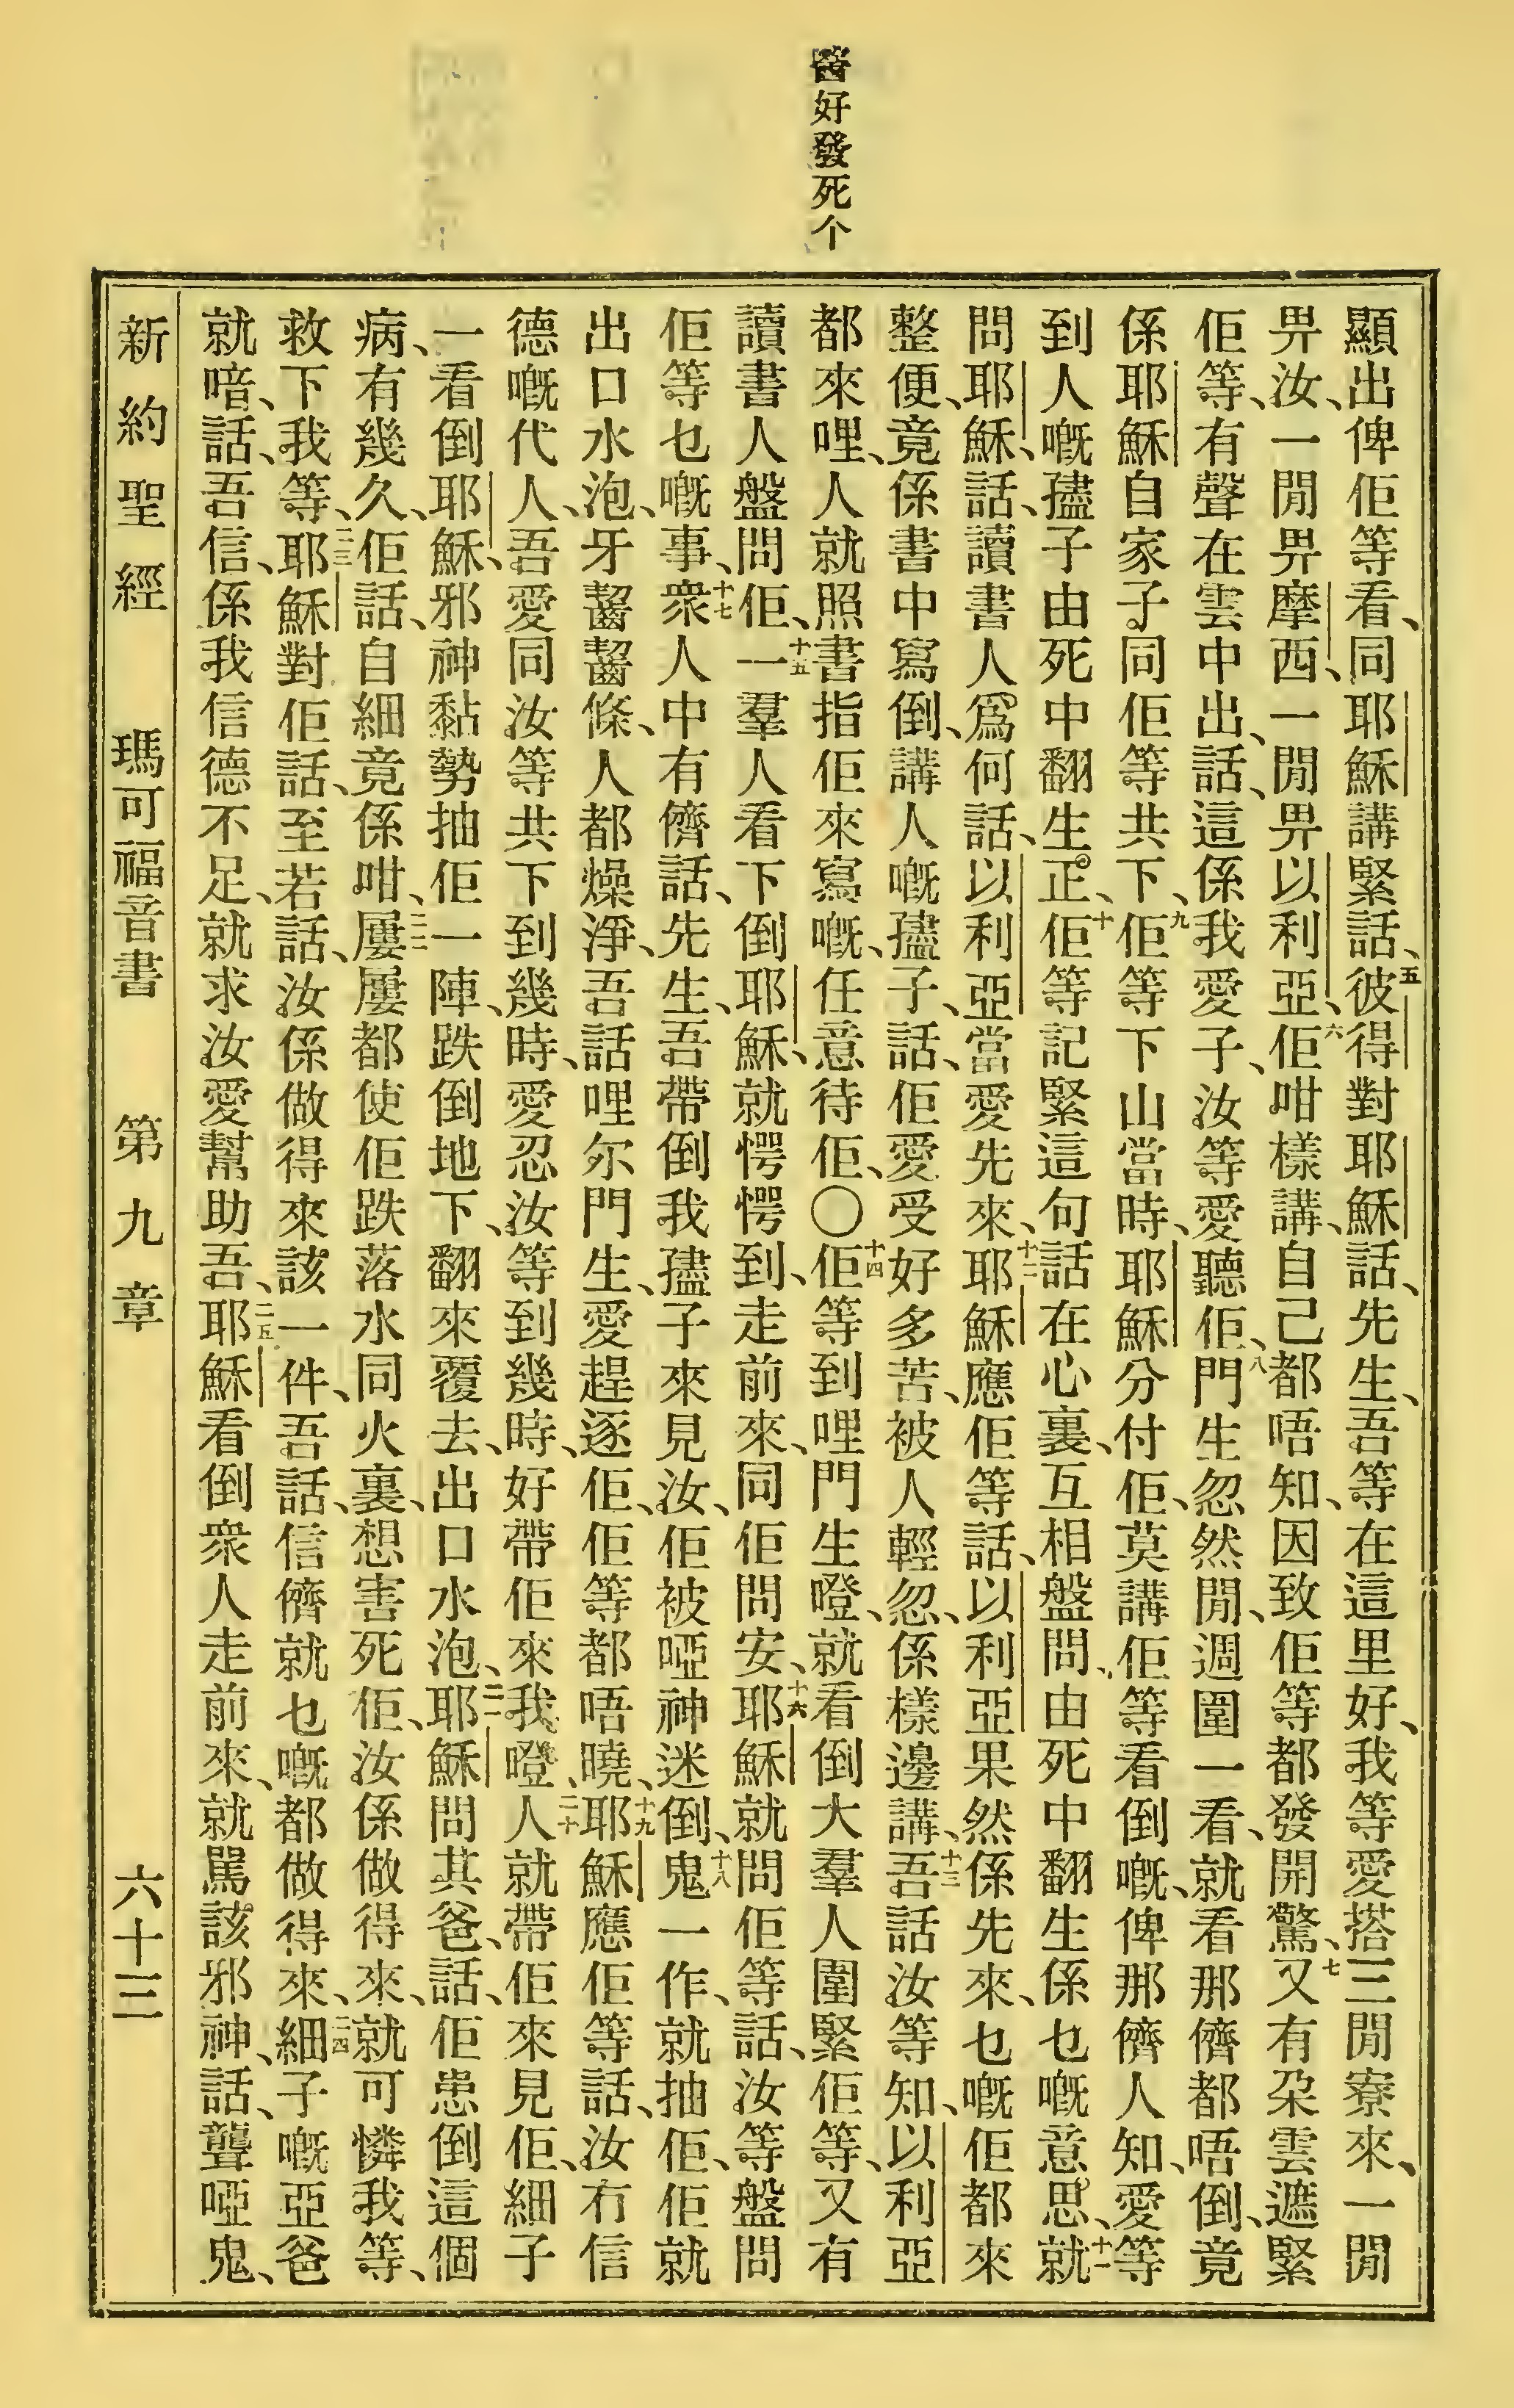 醫好發死个
顯出俾佢等看、同耶穌講緊話、五彼得對耶穌話、先生、吾等在這里好、我等愛搭三閒寮來、一閒
畀汝、一閒畀摩西、一閒畀以利亞、六佢咁樣講、自己都唔知、因致佢等都發開驚、七又有朶雲遮緊
佢等、有聲在雲中出、話、這係我愛子、汝等愛聽佢、八門生忽然閒、週圍一看、就看那儕都唔倒、竟
係耶穌自家子。同佢等共下、九佢等下山當時、耶穌分付佢、莫講佢等看倒嘅、俾那儕人知、愛等
到人嘅孻子由死中翻生正、十佢等記緊這句話在心裏、互相盤問、由死中翻生係乜嘅意思、十一就
問耶穌、話、讀書人爲何話、以利亞當愛先來、十二耶穌應佢等話、以利亞果然係先來、乜嘅佢都來
整便、竟係書中寫倒、講人嘅孻子、話、佢愛受好多苦、被人輕忽、係樣邊講、十三吾話汝等知、以利亞
都來哩、人就照書指佢來寫嘅、任意待佢、〇十四佢等到哩門生嘡、就看倒大羣人圍緊佢等、又有
讀書人盤問佢、十五一羣人看下倒耶穌、就愕愕到、走前來、同佢問安、十六耶穌就問佢等話、汝等盤問
佢等乜嘅事、十七衆人中有儕話、先生、吾帶倒我孻子來見汝、佢被啞神迷倒、十八鬼一作、就抽佢、佢就
出口水泡、牙齧齧條、人都燥淨、吾話哩尔門生、愛趕逐佢、佢等都唔曉、十九耶穌應佢等話、汝冇信
德嘅代人、吾愛同汝等共下到幾時、愛忍汝等到幾時、好帶佢來我嘡、二十人就帶佢來見佢、細子
一看倒耶穌、邪神黏勢抽佢一陣、跌倒地下、翻來覆去、出口水泡、二一耶穌問其爸、話、佢患倒這個
病、有幾久、佢話、自細竟係咁、二二屢屢都使佢跌落水同火裏、想害死佢、汝係做得來、就可憐我等、
救下我等、二三耶穌對佢話、至若話、汝係做得來該一件、吾話、信儕就乜嘅都做得來、二四細子嘅亞爸
就喑、話、吾信、係我信德不足、就求汝愛幫助吾、二五耶穌看倒衆人走前來、就罵該邪神、話、聾啞鬼、
新約聖經　瑪可福音書　第九章　六十三